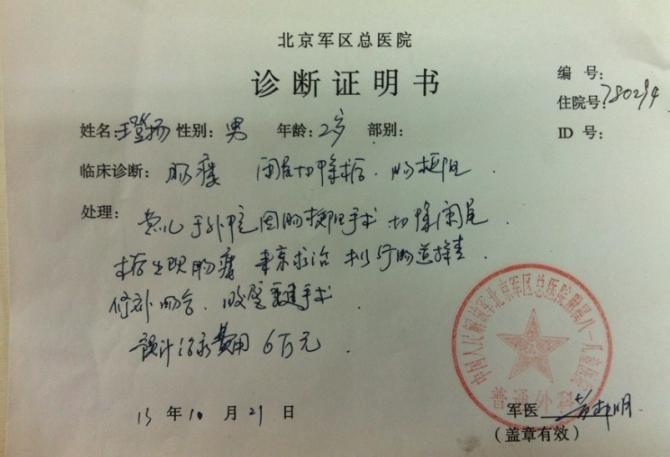 北京军区总医院
诊断证明书
编 号：
住院号：780294
姓名：王登扬 性别：男 年龄：2岁 部别：
ID 号：
临床诊断：肠瘘 阑尾切除术后．肠梗阻
处理：患儿于外院因肠梗阻手术 切除阑尾．
术后出现肠瘘 来京求治 拟行肠道探查．
修补吻合．腹壁 手术
预计治疗费用 6万元．
中国人民解放军北京军区总医院附属八一儿童医院
普通外科
13 年 10 月 29 日
军医
（盖章有效）